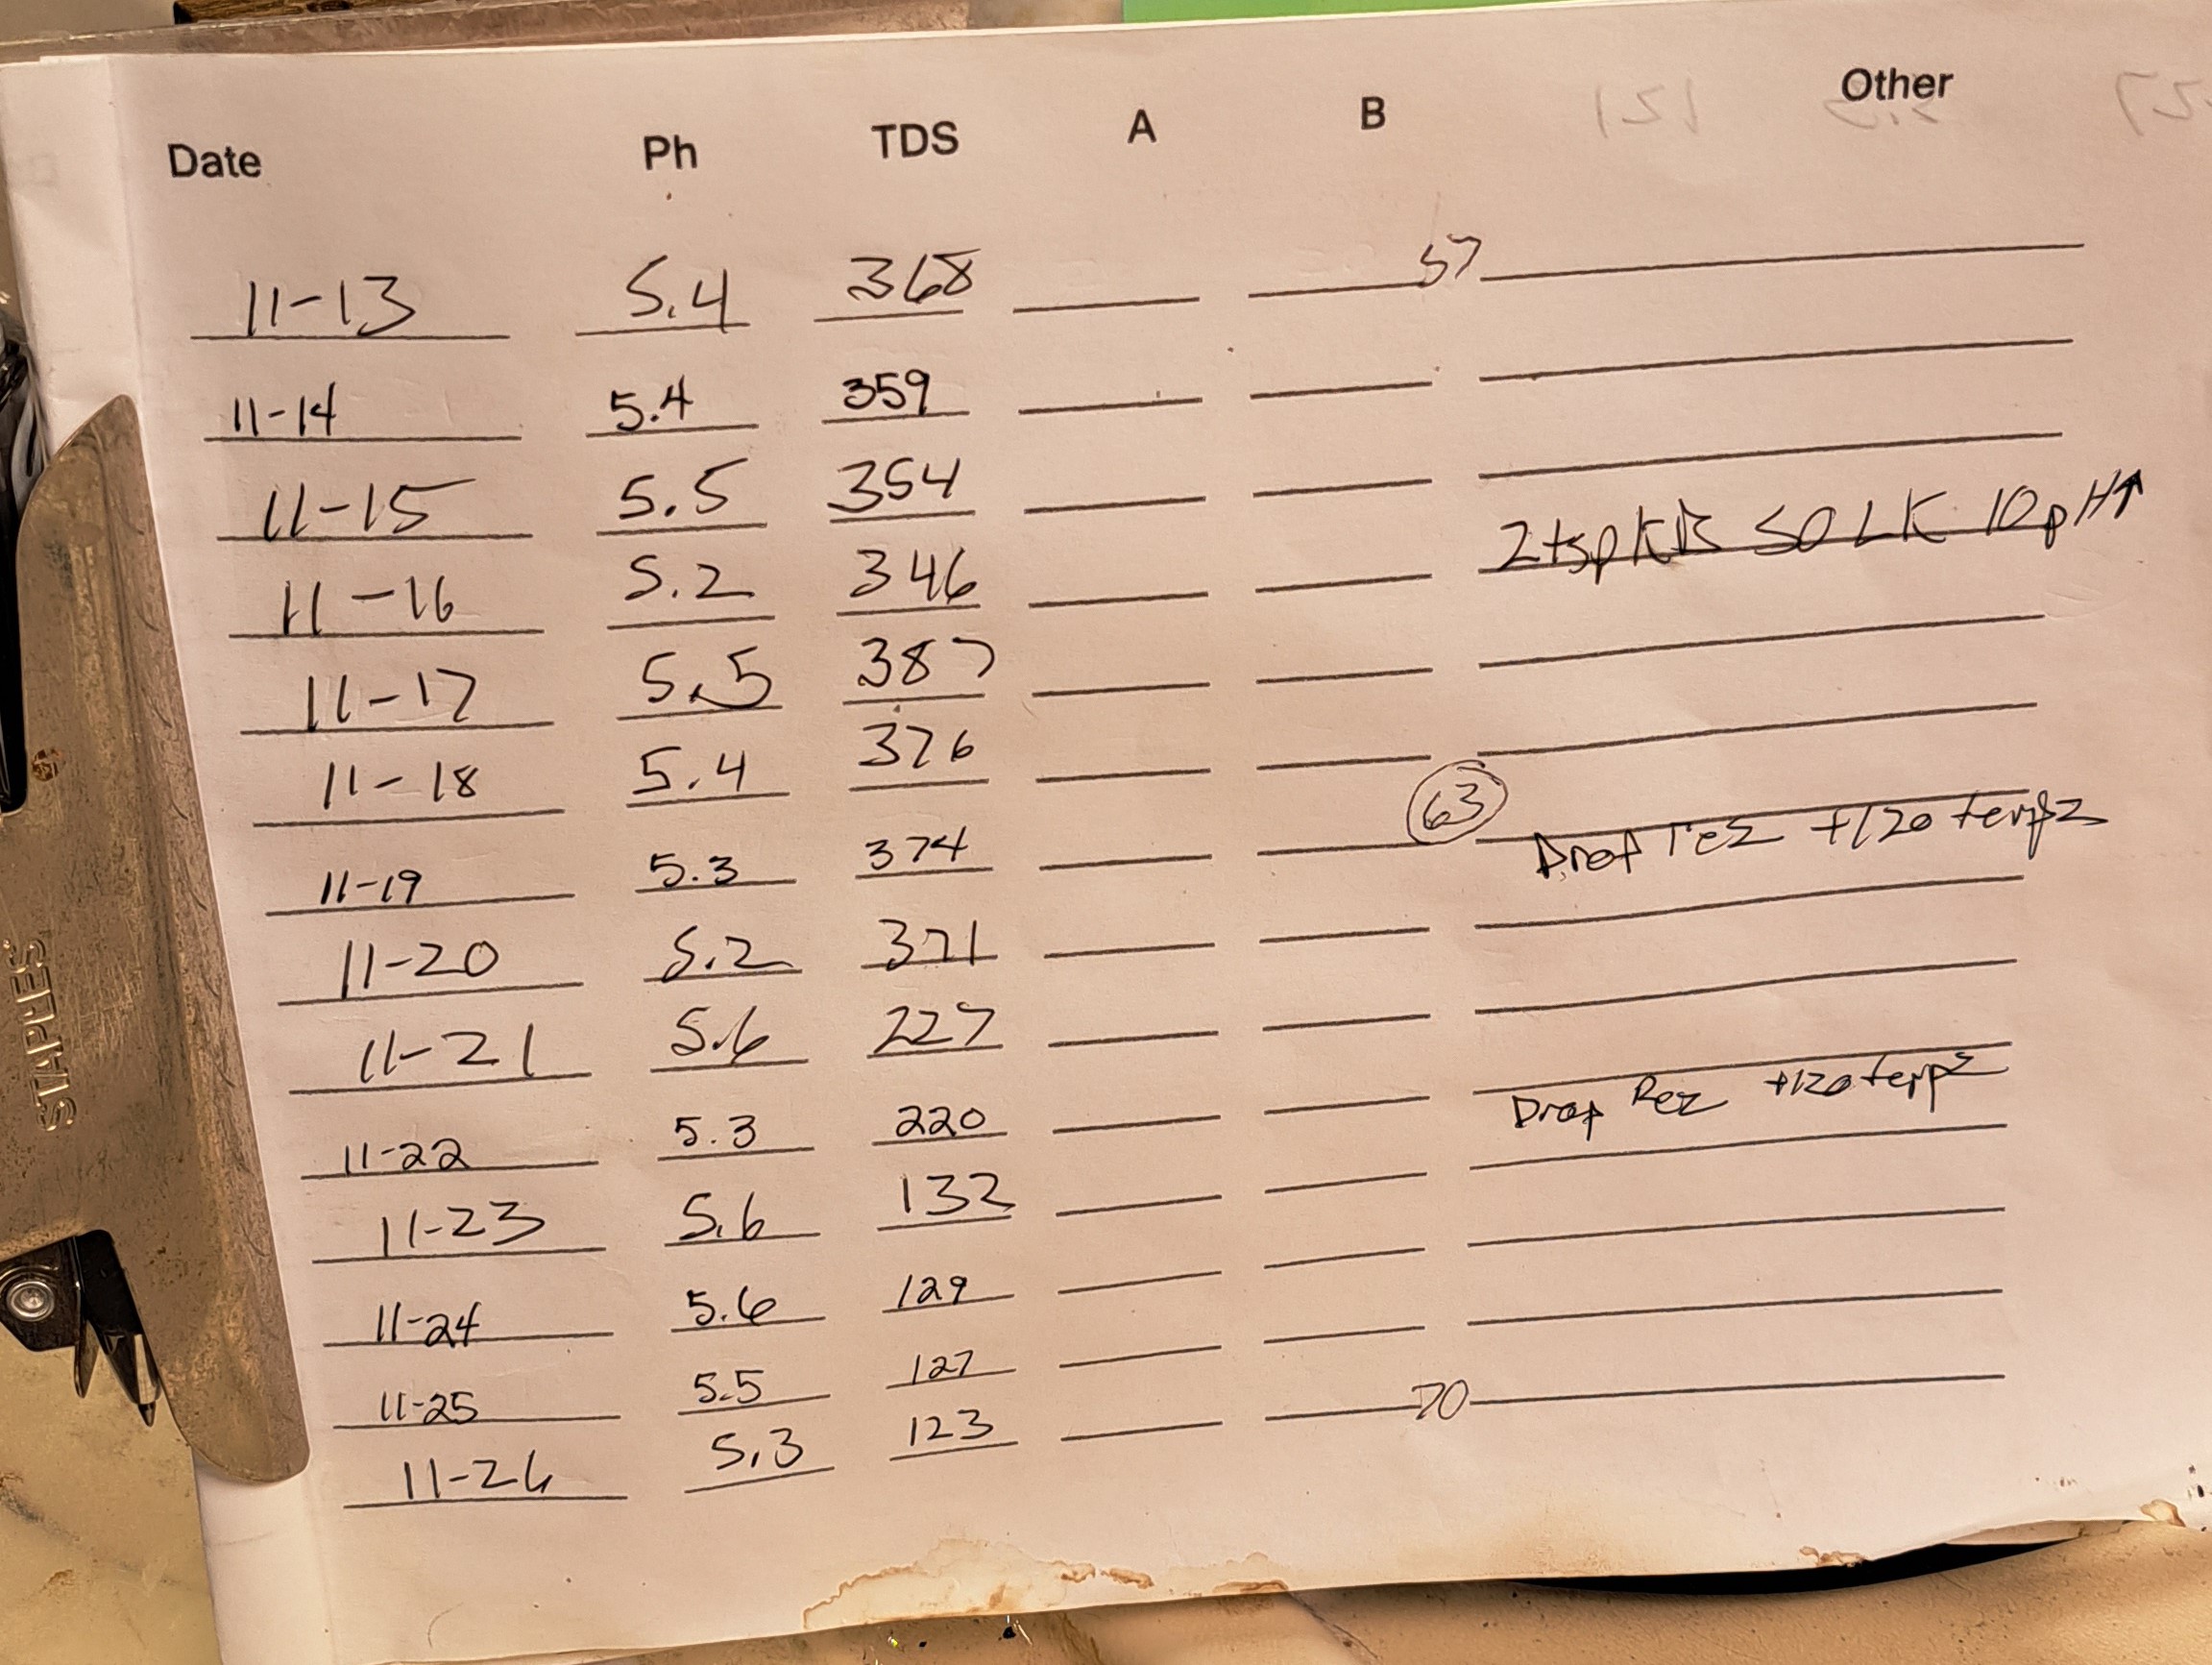 Date Ph TDS A B Other
11-13 5.4 368 57
11-14 5.4 359
11-15 5.5 354
11-16 5.2 346 2tsp KB 50 LK 10pH↑
11-17 5.5 387
11-18 5.4 376
11-19 5.3 374 63 Drop rez +120 terpz
11-20 5.2 371
11-21 5.6 227
11-22 5.3 220 Drop Rez +120 terpz
11-23 5.6 132
11-24 5.6 129
11-25 5.5 127
11-26 5.3 123 70
STAPLES